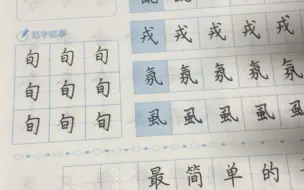 戎 戎 戎 戎 戎
旬 旬 旬
氛 氛 氛 氛 氛
旬 旬 旬
虱 虱 虱 虱 虱
旬 旬 旬
最 简 单 的